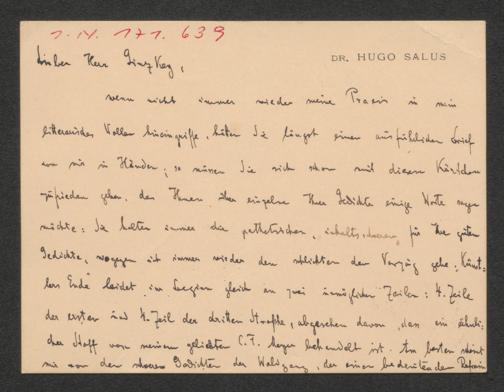 I.N. 171.639
DR. HUGO SALUS
Lieber Herr Ginzkey,
wenn nicht immer wieder meine Praxis in mein
litterarisches Wollen hineingriffe, hätten Sie längst einen ausführlichen Brief
von mir in Händen; so müssen Sie sich schon mit diesem Kärtchen
zufrieden geben, das Ihnen über einzelne Ihrer Gedichte einige Worte sagen
möchte: Sie halten immer die pathetischen, inhaltsschweren, für Ihre guten
Gedichte, wogegen ich immer wieder den schlichten den Vorzug gebe. Künst-
lers Ende leidet im Beginn gleich an zwei unmöglichen Zeilen: 4. Zeile
der ersten und 4. Zeil der dritten Strophe, abgesehen davon, dass ein ähnli-
cher Stoff von meinem geliebten C. F. Meyer behandelt ist. Am besten scheint
mir von den Gedichten der der einen bedeutenden Refrain